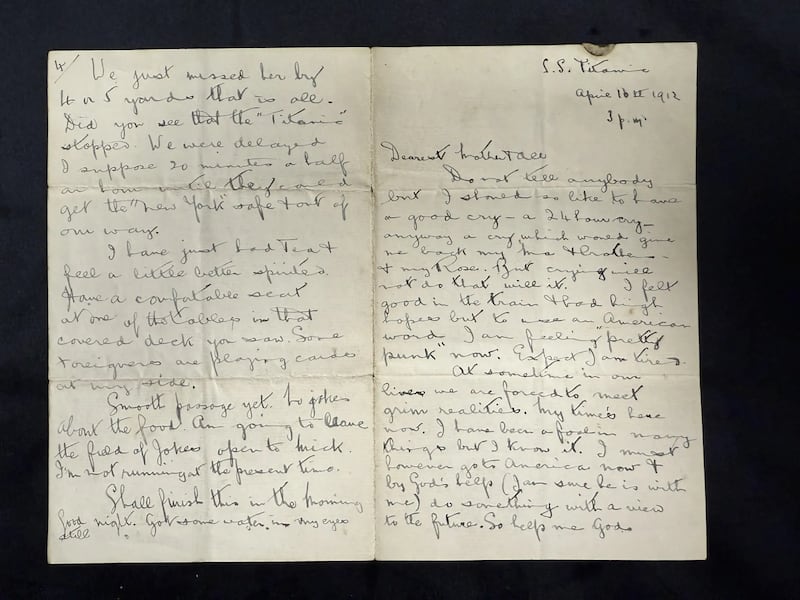 S.S. Titanic
April 10th 1912
3 p.m.
Dearest Mother & all
Do not tell anybody
but I should so like to have
a good cry – a 24 hour cry –
anyway a cry which would give
me back my Ma & brother –
& my Rose. But crying will
not do that, will it. I felt
good in the train & had high
hopes but to use an "American
word" I am feeling "pretty
punk" now. Expect I am tired.
At sometime in our
lives we are forced to meet
grim realities. My time's here
now. I have been a fool in many
things but I know it. I must
however go to America now &
by God's help (I am sure he is with
me) do something with a view
to the future. So help me God.
4/
We just missed her by
4 or 5 yards that is all.
Did you see that the "Titanic"
stopped. We were delayed
I suppose 20 minutes a half
an hour until they could
get the "New York" safe & out of
our way.
I have just had Tea &
feel a little better spirited.
Have a comfatable seat
at one of the tables in that
covered deck you saw. Some
Foreigners are playing cards
at my side.
Smooth passage yet. No jokes
about the food. Am going to leave
the field of Jokes open to Mick.
I'm not running at the present time.
Shall finish this in the morning
Good night. Got some water in my eyes
still